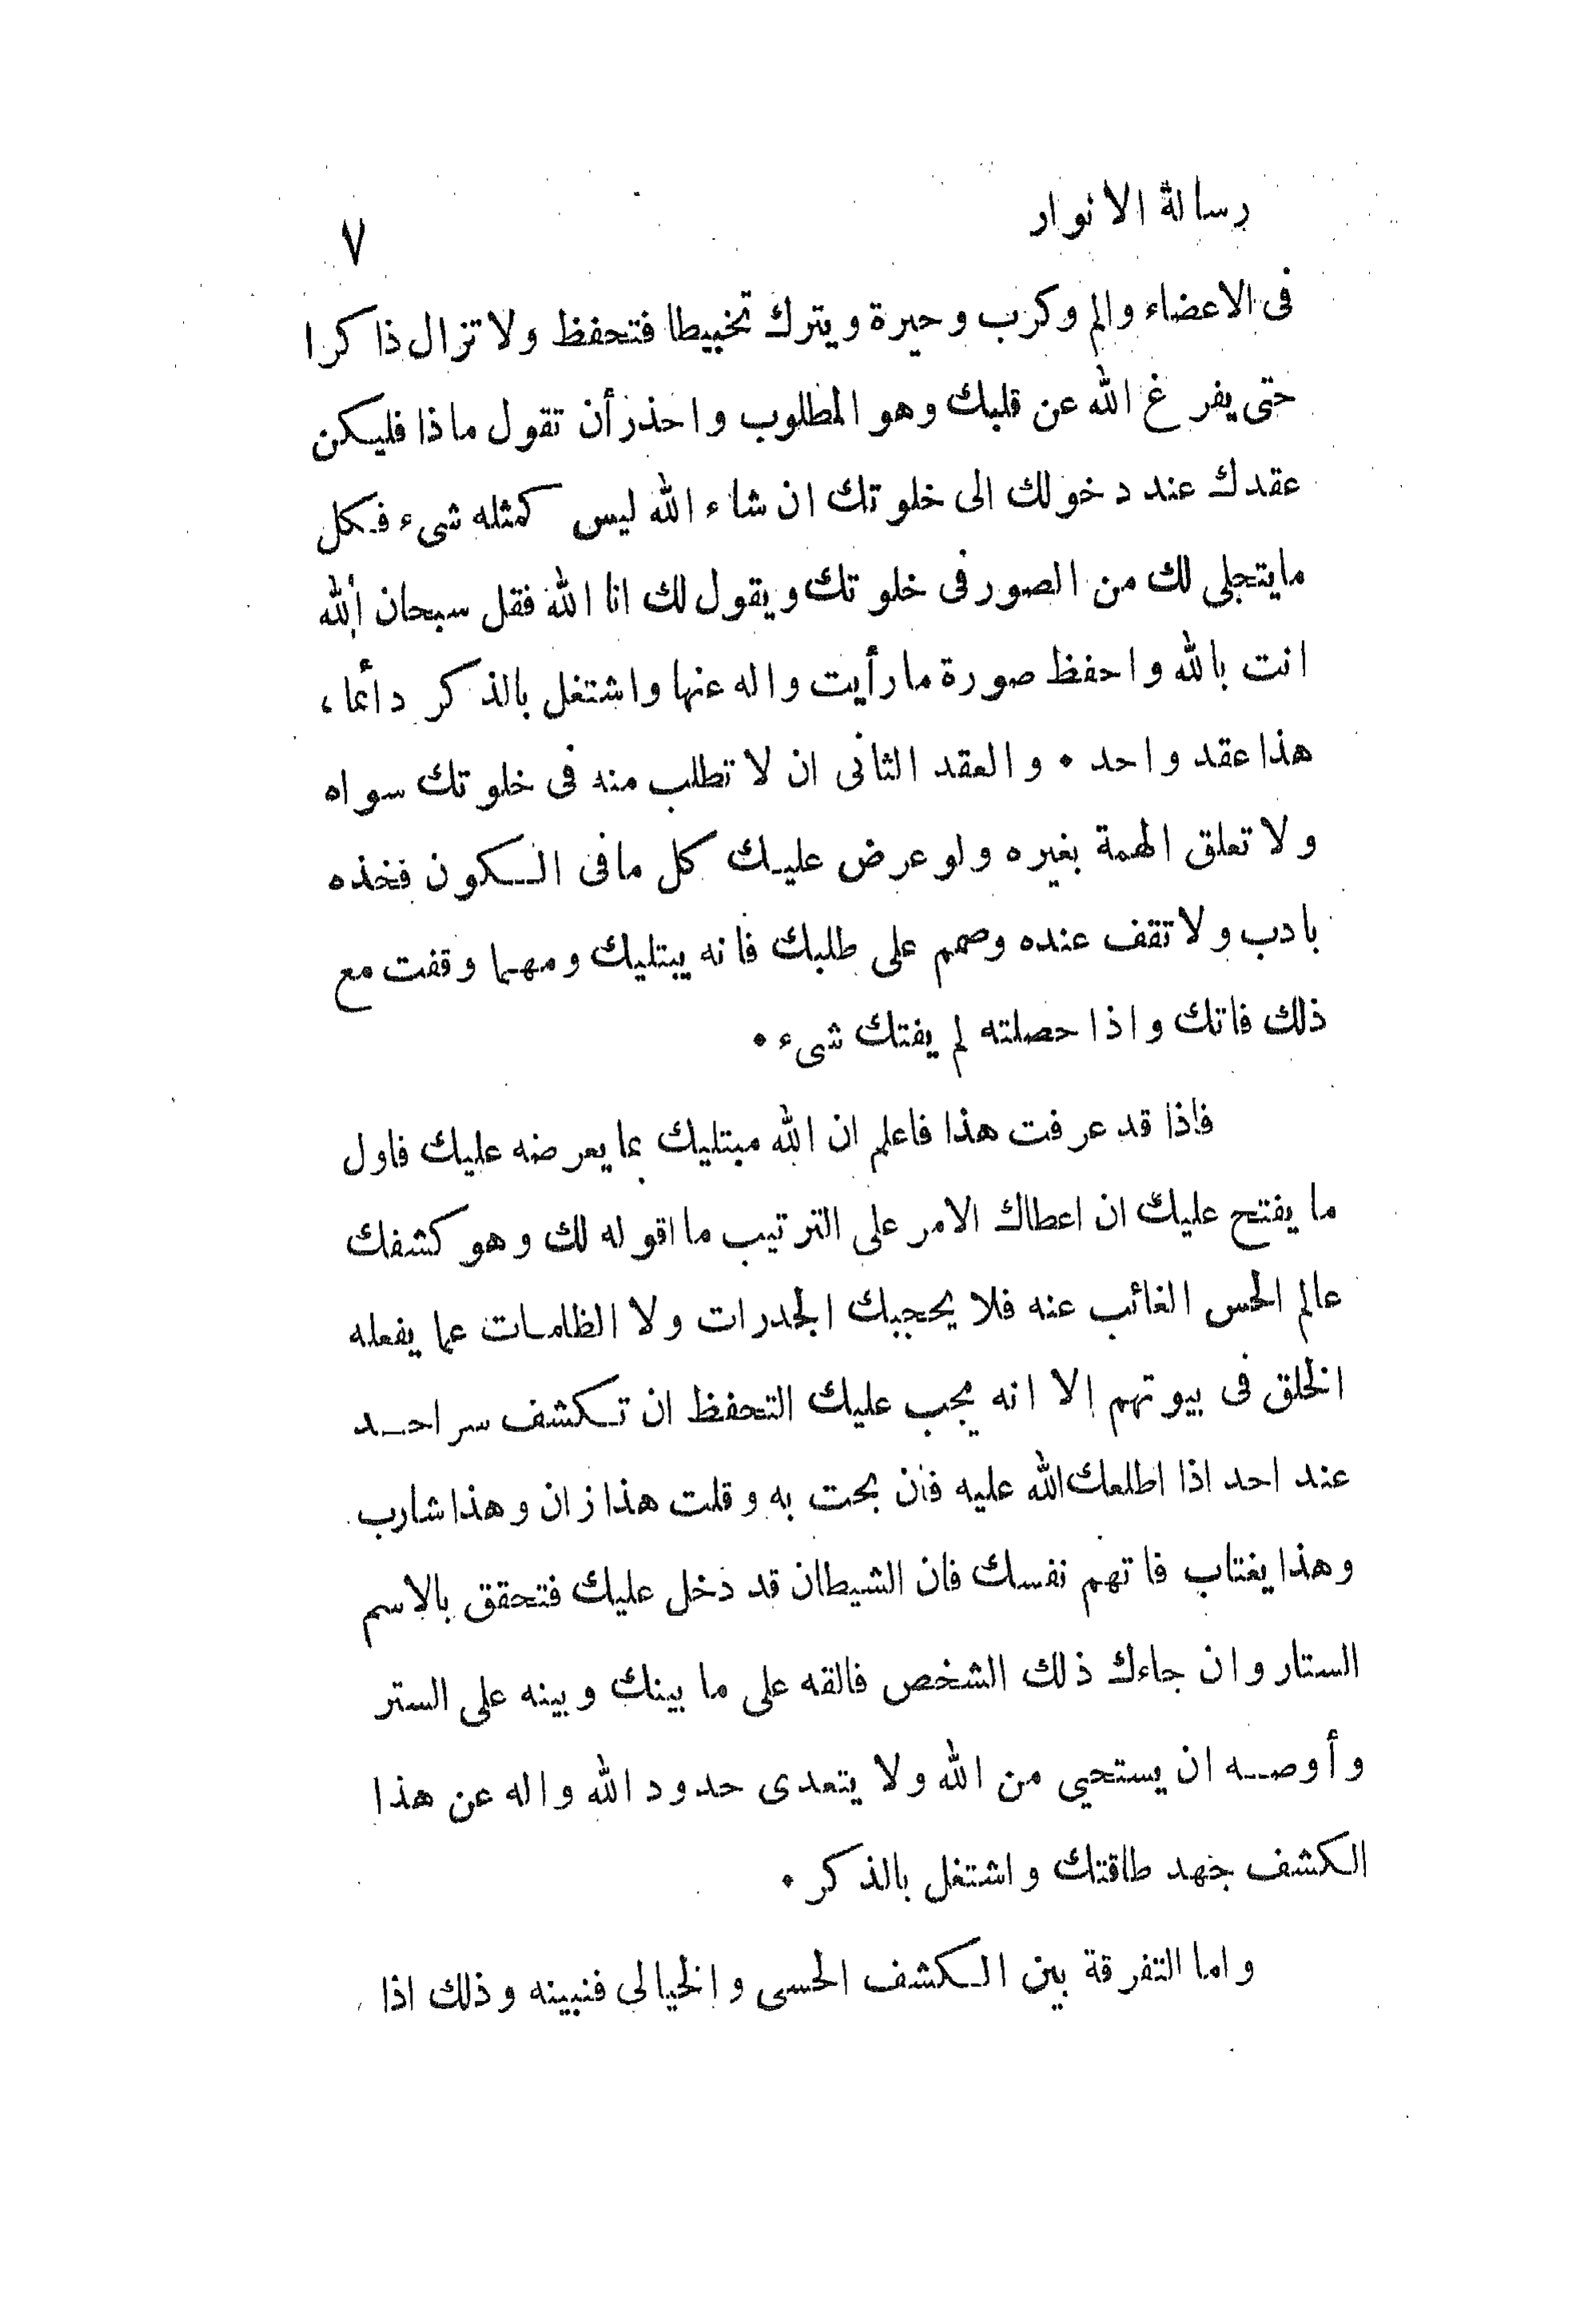 رسالة الانوار
٧
فى الاعضاء والم وكرب وحيرة ويترك تخبيطا فتحفظ ولا تزال ذاكرا
حتى يفرغ الله عن قلبك وهو المطلوب واحذر أن تقول ماذا فليكن
عقدك عند دخولك الى خلوتك ان شاء الله ليس كمثله شىء فكل
مايتجلى لك من الصور فى خلوتك ويقول لك انا الله فقل سبحان الله
انت بالله واحفظ صورة ما رأيت واله عنها واشتغل بالذكر دأئما ،
هذا عقد واحد • والعقد الثانى ان لا تطلب منه فى خلوتك سواه
ولا تعلق الهمة بغيره ولو عرض عليك كل مافى الكون فخذه
بادب ولا تقف عنده وصمم على طلبك فانه يبتليك ومهما وقفت مع
ذلك فاتك واذا حصلته لم يفتك شىء •
فاذا قد عرفت هذا فاعلم ان الله مبتليك بما يعرضه عليك فاول
ما يفتح عليك ان اعطاك الامر على الترتيب ما اقوله لك وهو كشفك
عالم الحس الغائب عنه فلا يحجبك الجدرات ولا الظلمات عما يفعله
الخلق فى بيوتهم إلا انه يجب عليك التحفظ ان تكشف سر احد
عند احد اذا اطلعك الله عليه فان بحت به وقلت هذا زان وهذا شارب
وهذا يغتاب فاتهم نفسك فان الشيطان قد دخل عليك فتحقق بالاسم
الستار وان جاءك ذلك الشخص فالقه على ما بينك وبينه على الستر
وأوصه ان يستحيي من الله ولا يتعدى حدود الله واله عن هذا
الكشف جهد طاقتك واشتغل بالذكر •
واما التفرقة بين الكشف الحسى والخيالى فنبينه وذلك اذا